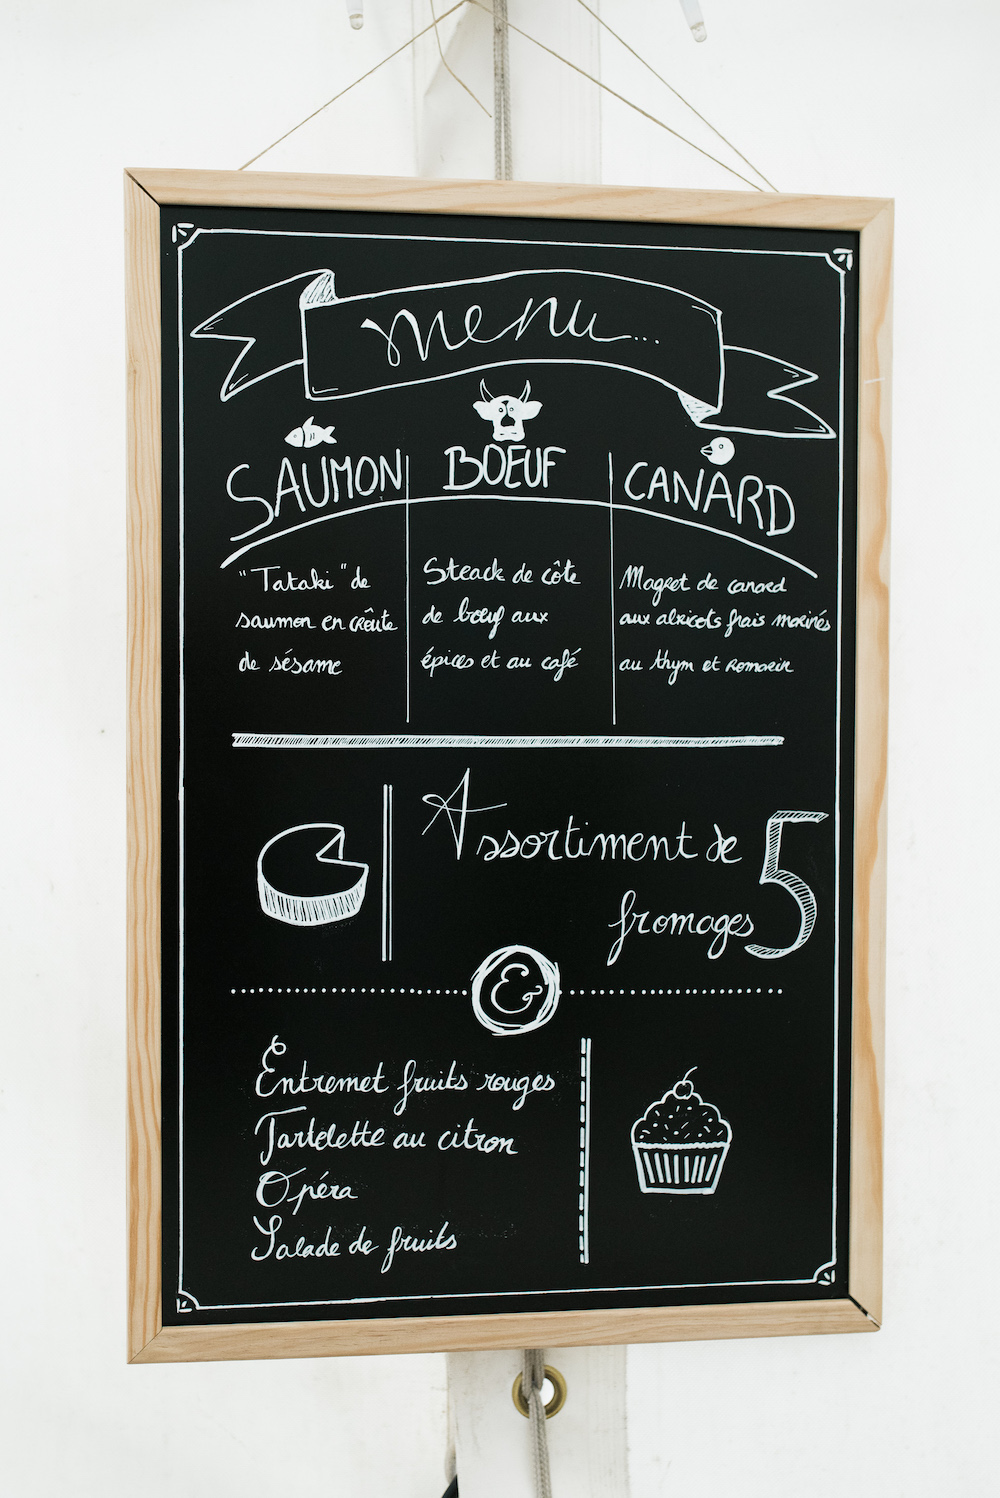 menu...
SAUMON
BOEUF
CANARD
"Tataki" de
saumon en croûte
de sésame
Steack de côte
de bœuf aux
épices et au café
Magret de canard
aux abricots frais marinés
au thym et romarin
Assortiment de 5
fromages
&
Entremet fruits rouges
Tartelette au citron
Opéra
Salade de fruits